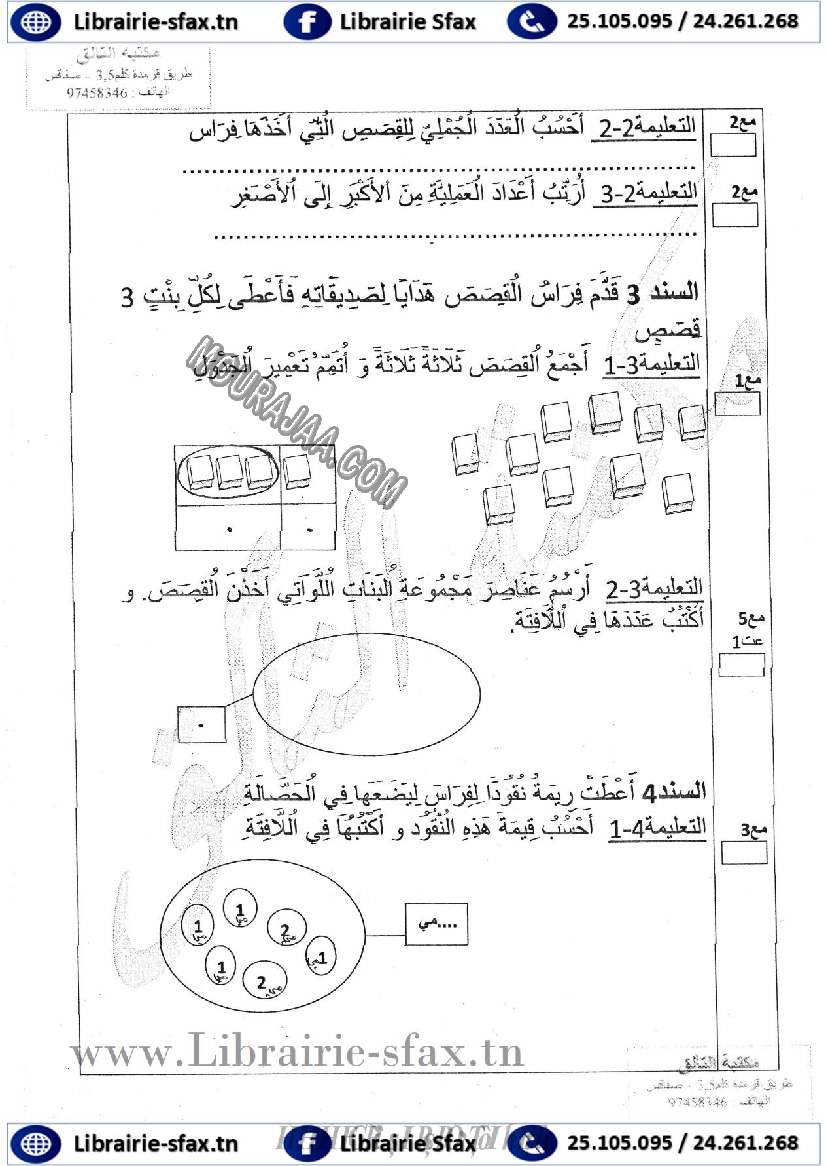 Librairie-sfax.tn Librairie Sfax 25.105.095 / 24.261.268
مكتبة التألق
طريق قرمدة كلم3,5 - صفاقس
الهاتف : 97458346
مع2
التعليمة2-2 أَحْسُبُ الْعَدَدَ الْجُمْلِيَّ لِلْقِصَصِ الَّتِي أَخَذَهَا فِرَاس
................................................
مع2
التعليمة2-3 أُرَتِّبُ أَعْدَادَ الْعَمَلِيَّةِ مِنَ الأَكْبَرِ إِلَى الْأَصْغَرِ
................................................
السند 3 قَدَّمَ فِرَاسُ الْقِصَصَ هَدَايَا لِصَدِيقَاتِهِ فَأَعْطَى لِكُلِّ بِنْتٍ 3
قِصَصٍ
التعليمة3-1 أَجْمَعُ الْقِصَصَ ثَلَاثَةً ثَلَاثَةً وَ أُتَمِّمُ تَعْمِيرَ الْجَدْوَلِ
مع1
MOURAJAA.COM
التعليمة3-2 أَرْسُمُ عَنَاصِرَ مَجْمُوعَةِ الْبَنَاتِ اللَّوَاتِي أَخَذْنَ الْقِصَصَ. و
أَكْتُبُ عَدَدَهَا فِي اللَّافِتَةِ.
مع5
عت1
السند4 أَعْطَتْ رِيمَةُ نُقُودًا لِفِرَاسَ لِيَضَعَهَا فِي الْحَصَّالَةِ
التعليمة4-1 أَحْسُبُ قِيمَةَ هَذِهِ النُّقُودِ و أَكْتُبُهَا فِي اللَّافِتَةِ
مع3
....مي
1 مي
1 مي
2 مي
1 مي
2 مي
1 مي
www.Librairie-sfax.tn
مكتبة التألق
طريق قرمدة كلم3,5 - صفاقس
الهاتف : 97458346
Librairie-sfax.tn Librairie Sfax 25.105.095 / 24.261.268